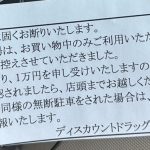 固くお断りいたします。
は、お買い物中のみご利用いただ
控えさせていただきました。
り、1万円を申し受けいたしますの
されましたら、店頭までお越しくだ
同様の無断駐車をされた場合は、
報いたします。
ディスカウントドラッグ